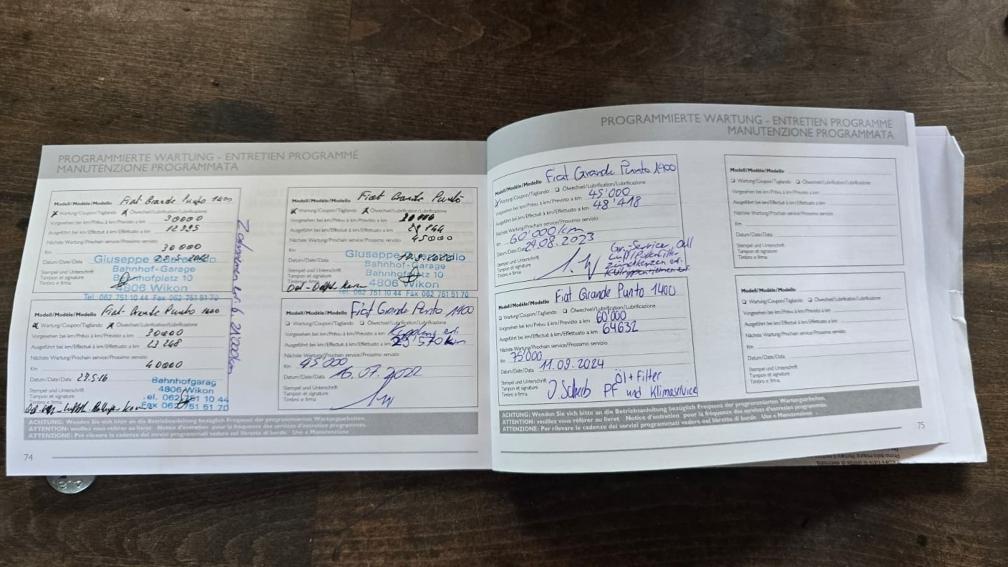 PROGRAMMIERTE WARTUNG - ENTRETIEN PROGRAMMÉ
MANUTENZIONE PROGRAMMATA
Modell/Modèle/Modello Fiat Grande Punto 1400
Wartung/Coupon/Tagliando Ölwechsel/Lubrification/Lubrificazione
Vorgesehen bei km/Prévu à km/Previsto a km 30000
Ausgeführt bei km/Effectué à km/Effettuato a km
Nächste Wartung/Prochain service/Prossimo servizio
Km 30 000
Datum/Date/Data
Stempel und Unterschrift
Tampon et signature
Timbro e firma
Giuseppe
Bahnhof-Garage
Bahnhofplatz 10
4806 Wikon
Tel. 062 751 10 44 Fax 062 751 51 70
Modell/Modèle/Modello Fiat Grande Punto 1400
Wartung/Coupon/Tagliando Ölwechsel/Lubrification/Lubrificazione
Vorgesehen bei km/Prévu à km/Previsto a km 30000
Ausgeführt bei km/Effectué à km/Effettuato a km 23 268
Nächste Wartung/Prochain service/Prossimo servizio
Km 40000
Datum/Date/Data 27.5.16
Stempel und Unterschrift
Tampon et signature
Timbro e firma
Bahnhofgarag
4806 Wikon
el. 062 751 10 44
Fax 062 751 51 70
Zahnriemen
Modell/Modèle/Modello Fiat Grande Punto
Wartung/Coupon/Tagliando Ölwechsel/Lubrification/Lubrificazione
Vorgesehen bei km/Prévu à km/Previsto a km 30000
Ausgeführt bei km/Effectué à km/Effettuato a km
Nächste Wartung/Prochain service/Prossimo servizio
Km 45000
Datum/Date/Data
Stempel und Unterschrift
Tampon et signature
Timbro e firma
Giuseppe
Bahnhof-Garage
Bahnhofplatz 10
4806 Wikon
Tel. 062 751 10 44 Fax 062 751 51 70
Modell/Modèle/Modello Fiat Grande Punto 1400
Wartung/Coupon/Tagliando Ölwechsel/Lubrification/Lubrificazione
Vorgesehen bei km/Prévu à km/Previsto a km
Ausgeführt bei km/Effectué à km/Effettuato a km
Nächste Wartung/Prochain service/Prossimo servizio
Km 45'000
Datum/Date/Data 16.07.2022
Stempel und Unterschrift
Tampon et signature
Timbro e firma
ACHTUNG: Wenden Sie sich bitte an die Betriebsanleitung bezüglich Frequenz der programmierten Wartungsarbeiten.
ATTENTION: veuillez vous référer au livret Notice d'entretien pour la fréquence des services d'entretien programmé.
ATTENZIONE: Per rilevare le cadenze dei servizi programmati vedere sul libretto di bordo Uso e Manutenzione
74
PROGRAMMIERTE WARTUNG - ENTRETIEN PROGRAMMÉ
MANUTENZIONE PROGRAMMATA
Modell/Modèle/Modello Fiat Grande Punto 1400
Wartung/Coupon/Tagliando Ölwechsel/Lubrification/Lubrificazione
Vorgesehen bei km/Prévu à km/Previsto a km 45'000
Ausgeführt bei km/Effectué à km/Effettuato a km 48'418
Nächste Wartung/Prochain service/Prossimo servizio
Km 60'000/km
Datum/Date/Data 29.08.2023
Stempel und Unterschrift
Tampon et signature
Timbro e firma
Modell/Modèle/Modello Fiat Grande Punto 1400
Wartung/Coupon/Tagliando Ölwechsel/Lubrification/Lubrificazione
Vorgesehen bei km/Prévu à km/Previsto a km 60'000
Ausgeführt bei km/Effectué à km/Effettuato a km 64632
Nächste Wartung/Prochain service/Prossimo servizio
Km 75'000
Datum/Date/Data 11.09.2024
Stempel und Unterschrift
Tampon et signature
Timbro e firma
Öl + Filter
PF und Klimaservice
Modell/Modèle/Modello
Wartung/Coupon/Tagliando Ölwechsel/Lubrification/Lubrificazione
Vorgesehen bei km/Prévu à km/Previsto a km
Ausgeführt bei km/Effectué à km/Effettuato a km
Nächste Wartung/Prochain service/Prossimo servizio
Km
Datum/Date/Data
Stempel und Unterschrift
Tampon et signature
Timbro e firma
Modell/Modèle/Modello
Wartung/Coupon/Tagliando Ölwechsel/Lubrification/Lubrificazione
Vorgesehen bei km/Prévu à km/Previsto a km
Ausgeführt bei km/Effectué à km/Effettuato a km
Nächste Wartung/Prochain service/Prossimo servizio
Km
Datum/Date/Data
Stempel und Unterschrift
Tampon et signature
Timbro e firma
ACHTUNG: Wenden Sie sich bitte an die Betriebsanleitung bezüglich Frequenz der programmierten Wartungsarbeiten.
ATTENTION: veuillez vous référer au livret Notice d'entretien pour la fréquence des services d'entretien programmé.
ATTENZIONE: Per rilevare le cadenze dei servizi programmati vedere sul libretto di bordo Uso e Manutenzione
75